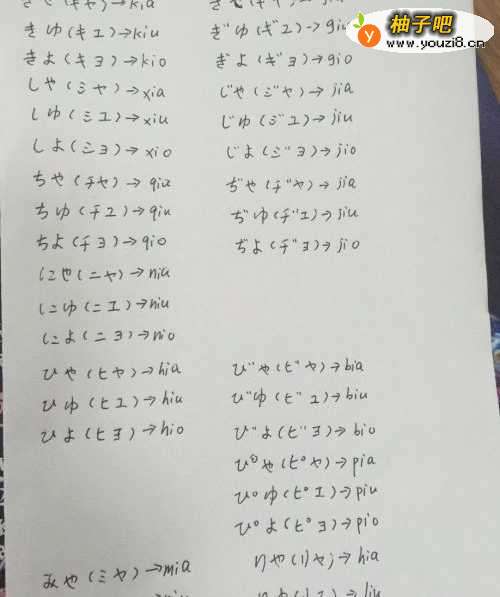 柚子吧
www.youzi8.cn
きゆ(キユ)→kiu
きよ(キヨ)→kio
しや(シヤ)→xia
しゆ(シユ)→xiu
しよ(シヨ)→xio
ちや(チヤ)→qia
ちゆ(チユ)→qiu
ちよ(チヨ)→qio
にや(ニヤ)→nia
にゆ(ニユ)→niu
によ(ニヨ)→nio
ひや(ヒヤ)→hia
ひゆ(ヒユ)→hiu
ひよ(ヒヨ)→hio
みや(ミヤ)→mia
ぎゆ(ギユ)→giu
ぎよ(ギヨ)→gio
じや(ジヤ)→jia
じゆ(ジユ)→jiu
じよ(ジヨ)→jio
ぢや(ヂヤ)→jia
ぢゆ(ヂユ)→jiu
ぢよ(ヂヨ)→jio
びや(ビヤ)→bia
びゆ(ビユ)→biu
びよ(ビヨ)→bio
ぴや(ピヤ)→pia
ぴゆ(ピユ)→piu
ぴよ(ピヨ)→pio
りや(リヤ)→hia